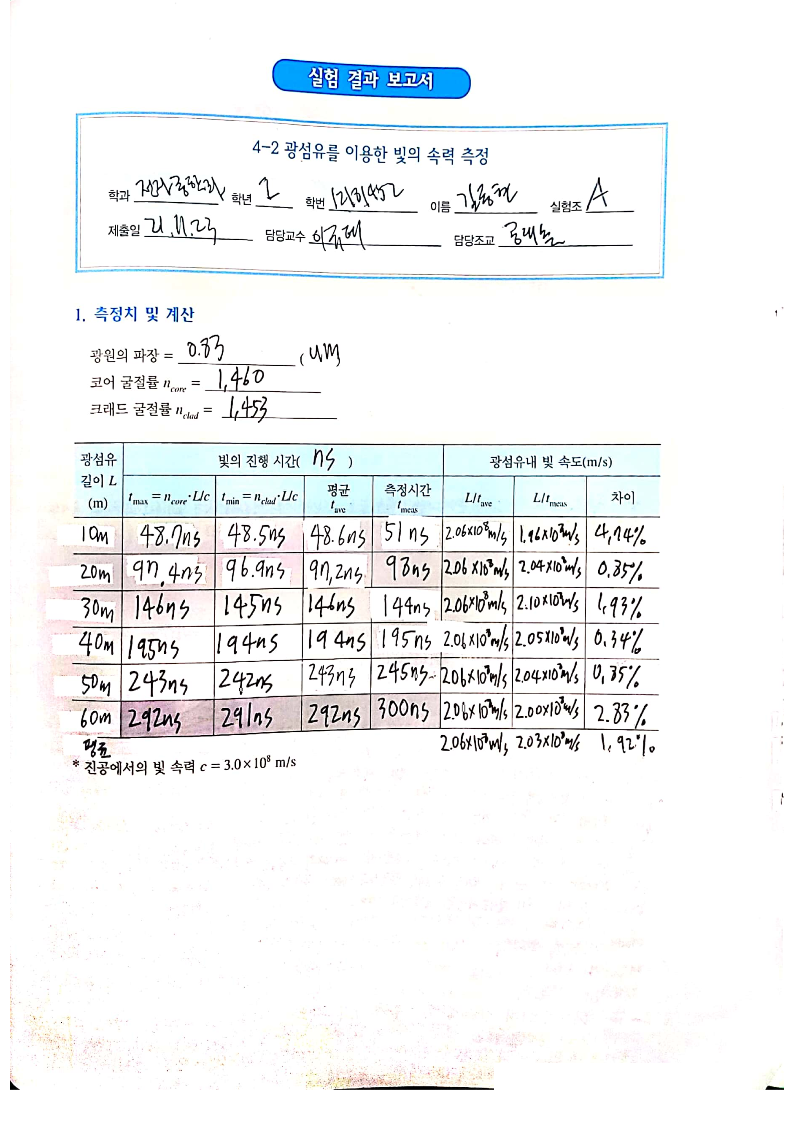 실험 결과 보고서
4-2 광섬유를 이용한 빛의 속력 측정
학과 학년 2 학번 이름 실험조 A
제출일 21.11.23 담당교수 담당조교
1. 측정치 및 계산
광원의 파장 = 0.83 (um
코어 굴절률 ncore = 1,460
크래드 굴절률 nclad = 1,453
광섬유 길이 L (m) 빛의 진행 시간( ns ) 광섬유내 빛 속도(m/s)
tmax = ncore·L/c tmin = nclad·L/c 평균 tave 측정시간 tmeas L/tave L/tmeas 차이
10m 48.7ns 48.5ns 48.6ns 51ns 2.06x10⁸m/s 1.96x10⁸m/s 4,74%
20m 97.4ns 96.9ns 97,2ns 98ns 2.06x10⁸m/s 2.04x10⁸m/s 0.85%
30m 146ns 145ns 146ns 144ns 2.06x10⁸m/s 2.10x10⁸m/s 1,93%
40m 195ns 194ns 194ns 195ns 2.06x10⁸m/s 2.05x10⁸m/s 0.34%
50m 243ns 242ns 243ns 245ns 2.06x10⁸m/s 2.04x10⁸m/s 0,85%
60m 292ns 291ns 292ns 300ns 2.06x10⁸m/s 2.00x10⁸m/s 2.83%
평균 2.06x10⁸m/s 2.03x10⁸m/s 1,92%
* 진공에서의 빛 속력 c = 3.0×10⁸ m/s